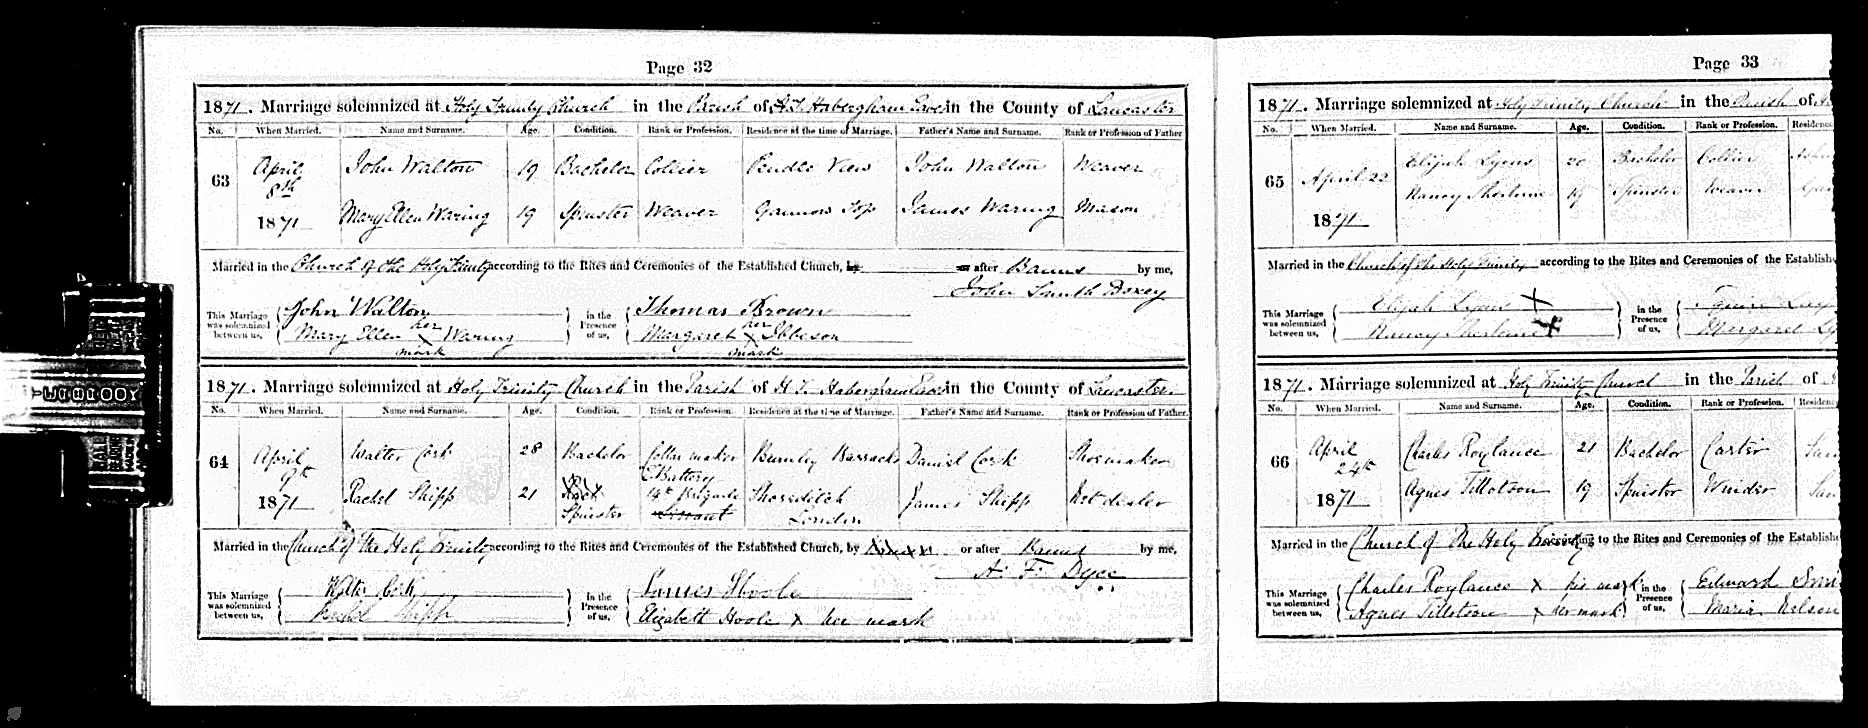 Page 32
1871. Marriage solemnized at Holy Trinity Church in the Parish of H.T. Habergham Eaves in the County of Lancaster
No. When Married. Name and Surname. Age. Condition. Rank or Profession. Residence at the time of Marriage. Father's Name and Surname. Rank or Profession of Father
63 April 8th 1871
John Walton 19 Bachelor Collier Pendle View John Walton Weaver
Mary Ellen Waring 19 Spinster Weaver Gannow Top James Waring Mason
Married in the Church of the Holy Trinity according to the Rites and Ceremonies of the Established Church, by or after Banns by me,
John Smith Doxey
This Marriage was solemnized between us, John Walton
Mary Ellen Waring her x mark
in the Presence of us, Thomas Brown
Margaret Ibbeson her x mark
1871. Marriage solemnized at Holy Trinity Church in the Parish of H.T. Habergham Eaves in the County of Lancaster
No. When Married. Name and Surname. Age. Condition. Rank or Profession. Residence at the time of Marriage. Father's Name and Surname. Rank or Profession of Father.
64 April 9th 1871
Walter Cork 28 Bachelor Collar maker C Battery 14th Brigade Burnley Barracks Daniel Cork Shoemaker
Rachel Shipp 21 Spinster Shoreditch London James Shipp
Married in the Church of The Holy Trinity according to the Rites and Ceremonies of the Established Church, by or after Banns by me,
A. F. Dyce
This Marriage was solemnized between us, Walter Cork
Rachel Shipp
In the Presence of us, James Hoole
Elizabeth Hoole x her mark
Page 33
1871. Marriage solemnized at Holy Trinity Church in the Parish of
No. When Married. Name and Surname. Age. Condition. Rank or Profession. Residence
65 April 22 1871
Elijah Lyons 20 Bachelor Collier
Nancy 19 Spinster Weaver
Married in the Church of the Holy Trinity according to the Rites and Ceremonies of the Establish
This Marriage was solemnized between us, Elijah Lyons x
Nancy x
in the Presence of us, Squire
Margaret
1871. Marriage solemnized at Holy Trinity Church in the Parish of
No. When Married. Name and Surname. Age. Condition. Rank or Profession. Residence
66 April 24th 1871
Charles Roylance 21 Bachelor Carter
Agnes Tillotson 19 Spinster Winder
Married in the Church of The Holy Trinity according to the Rites and Ceremonies of the Establish
This Marriage was solemnized between us, Charles Roylance x his mark
Agnes Tillotson x her mark
in the Presence of us, Edward
Maria Nelson